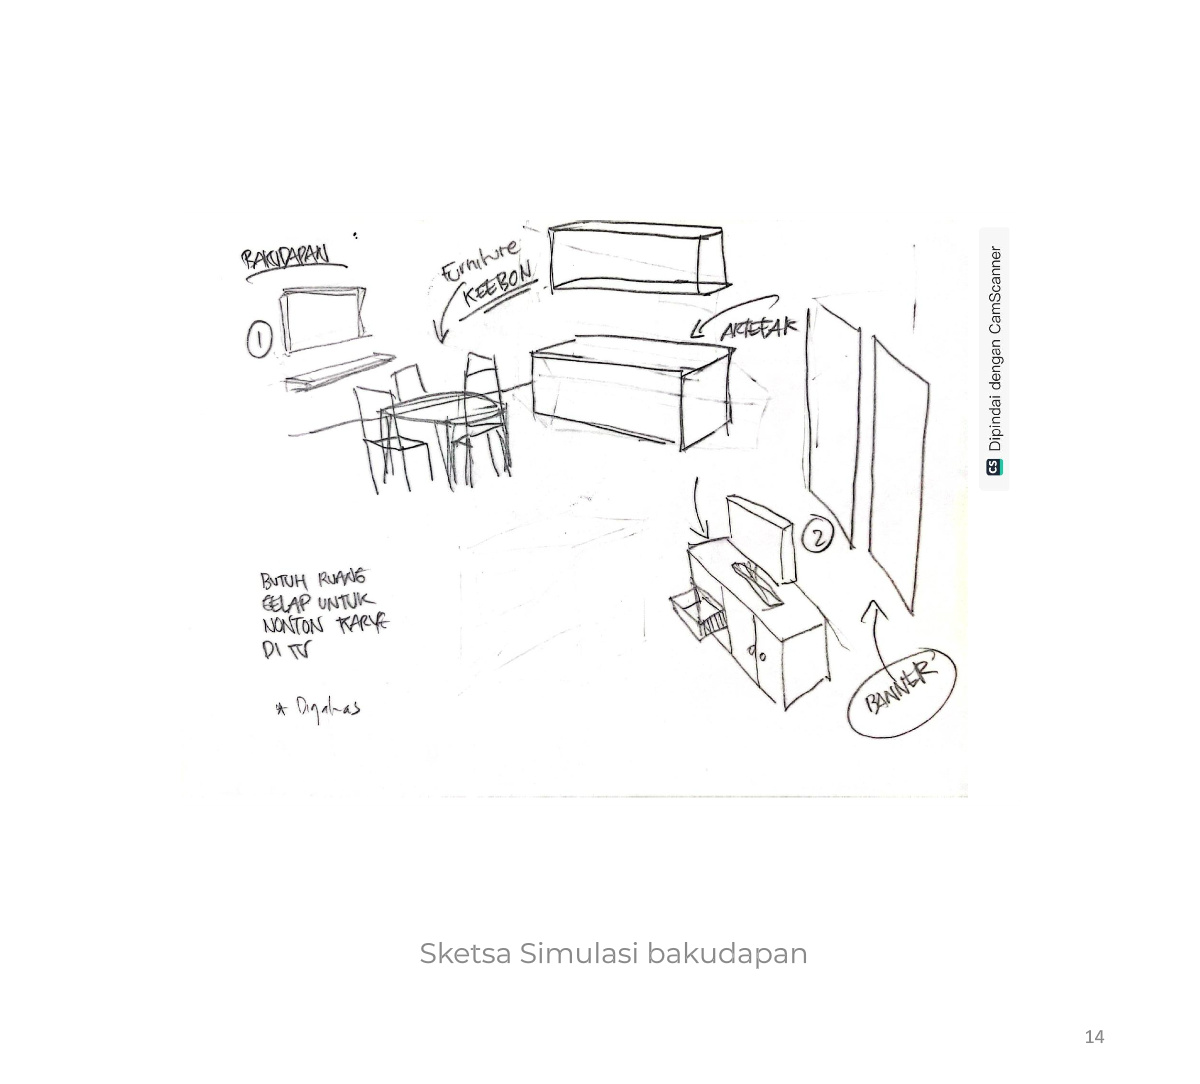 BAKUDAPAN
1
Furniture
KEEBON
ARTEFAK
2
BUTUH RUANG
GELAP UNTUK
NONTON KARYA
DI TV
BANNER
CS Dipindai dengan CamScanner
Sketsa Simulasi bakudapan
14